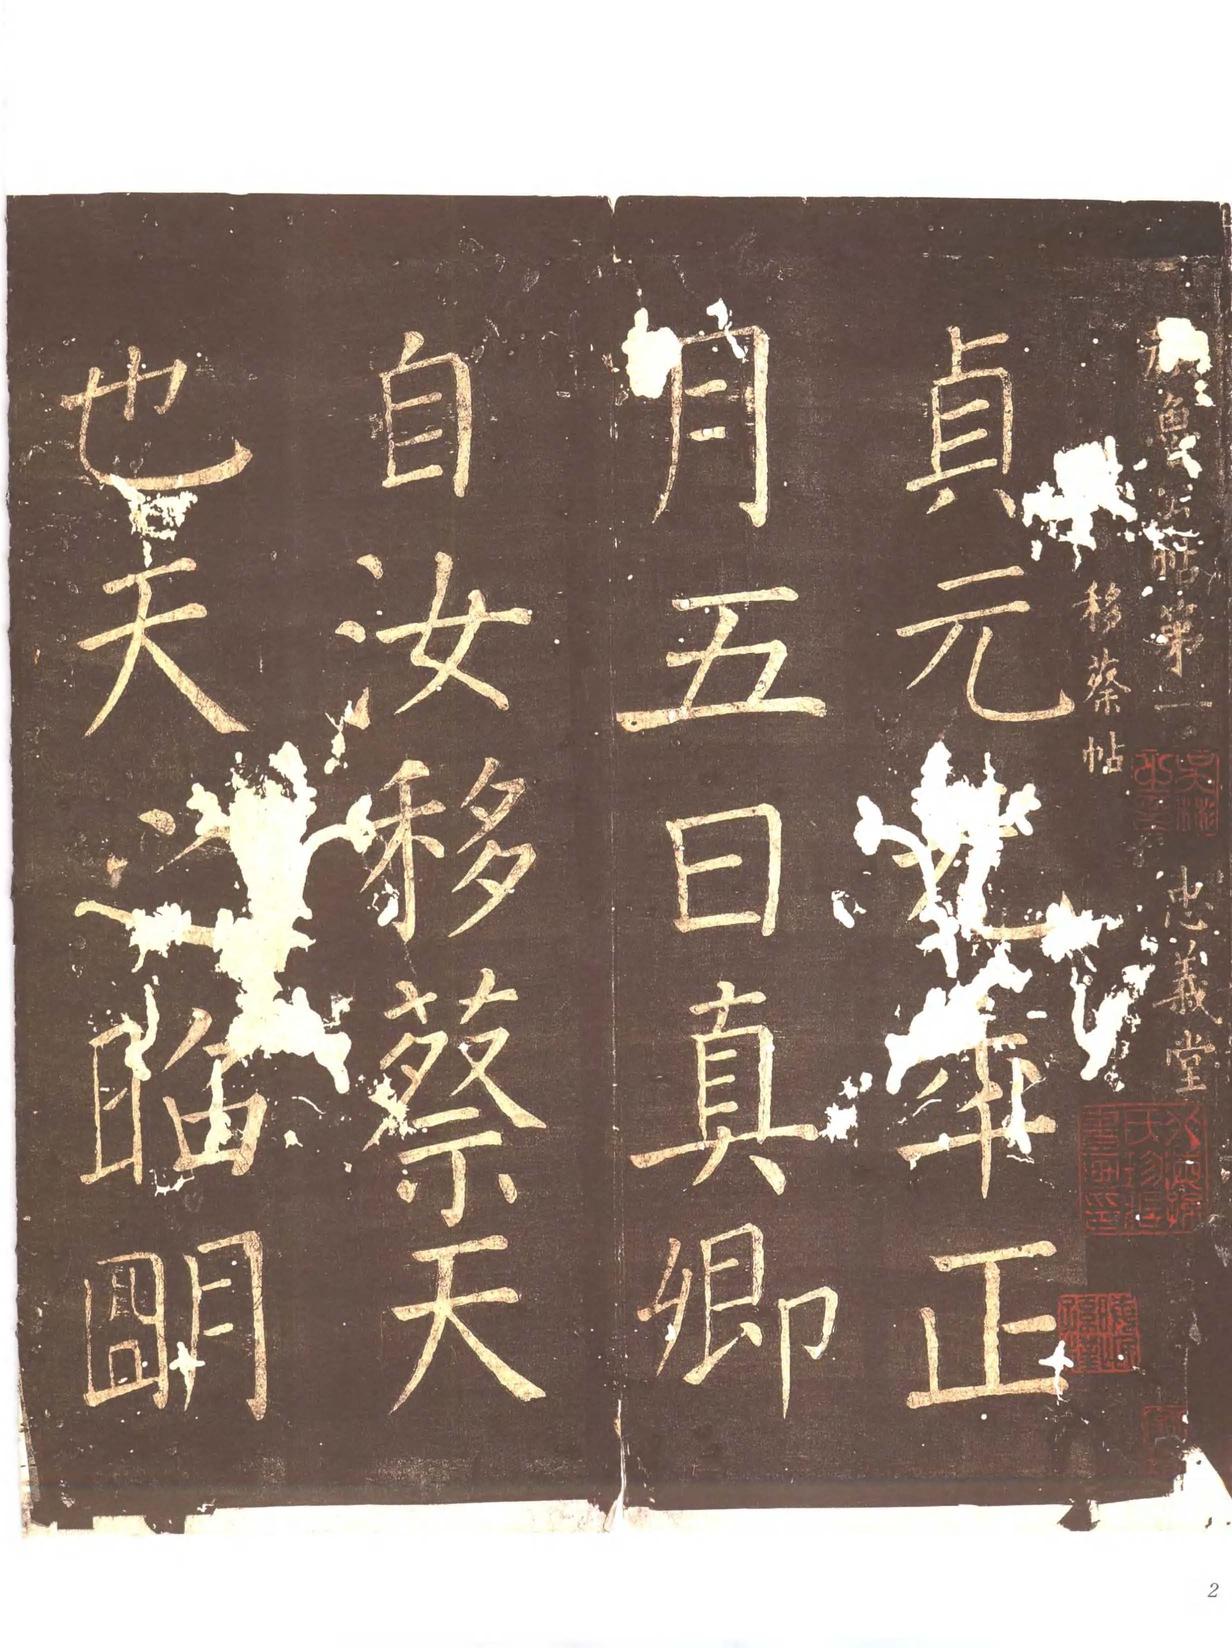 魯公帖第一 忠義堂
移蔡帖
貞元元年正
月五日真卿
自汝移蔡天
也天之昭明
2